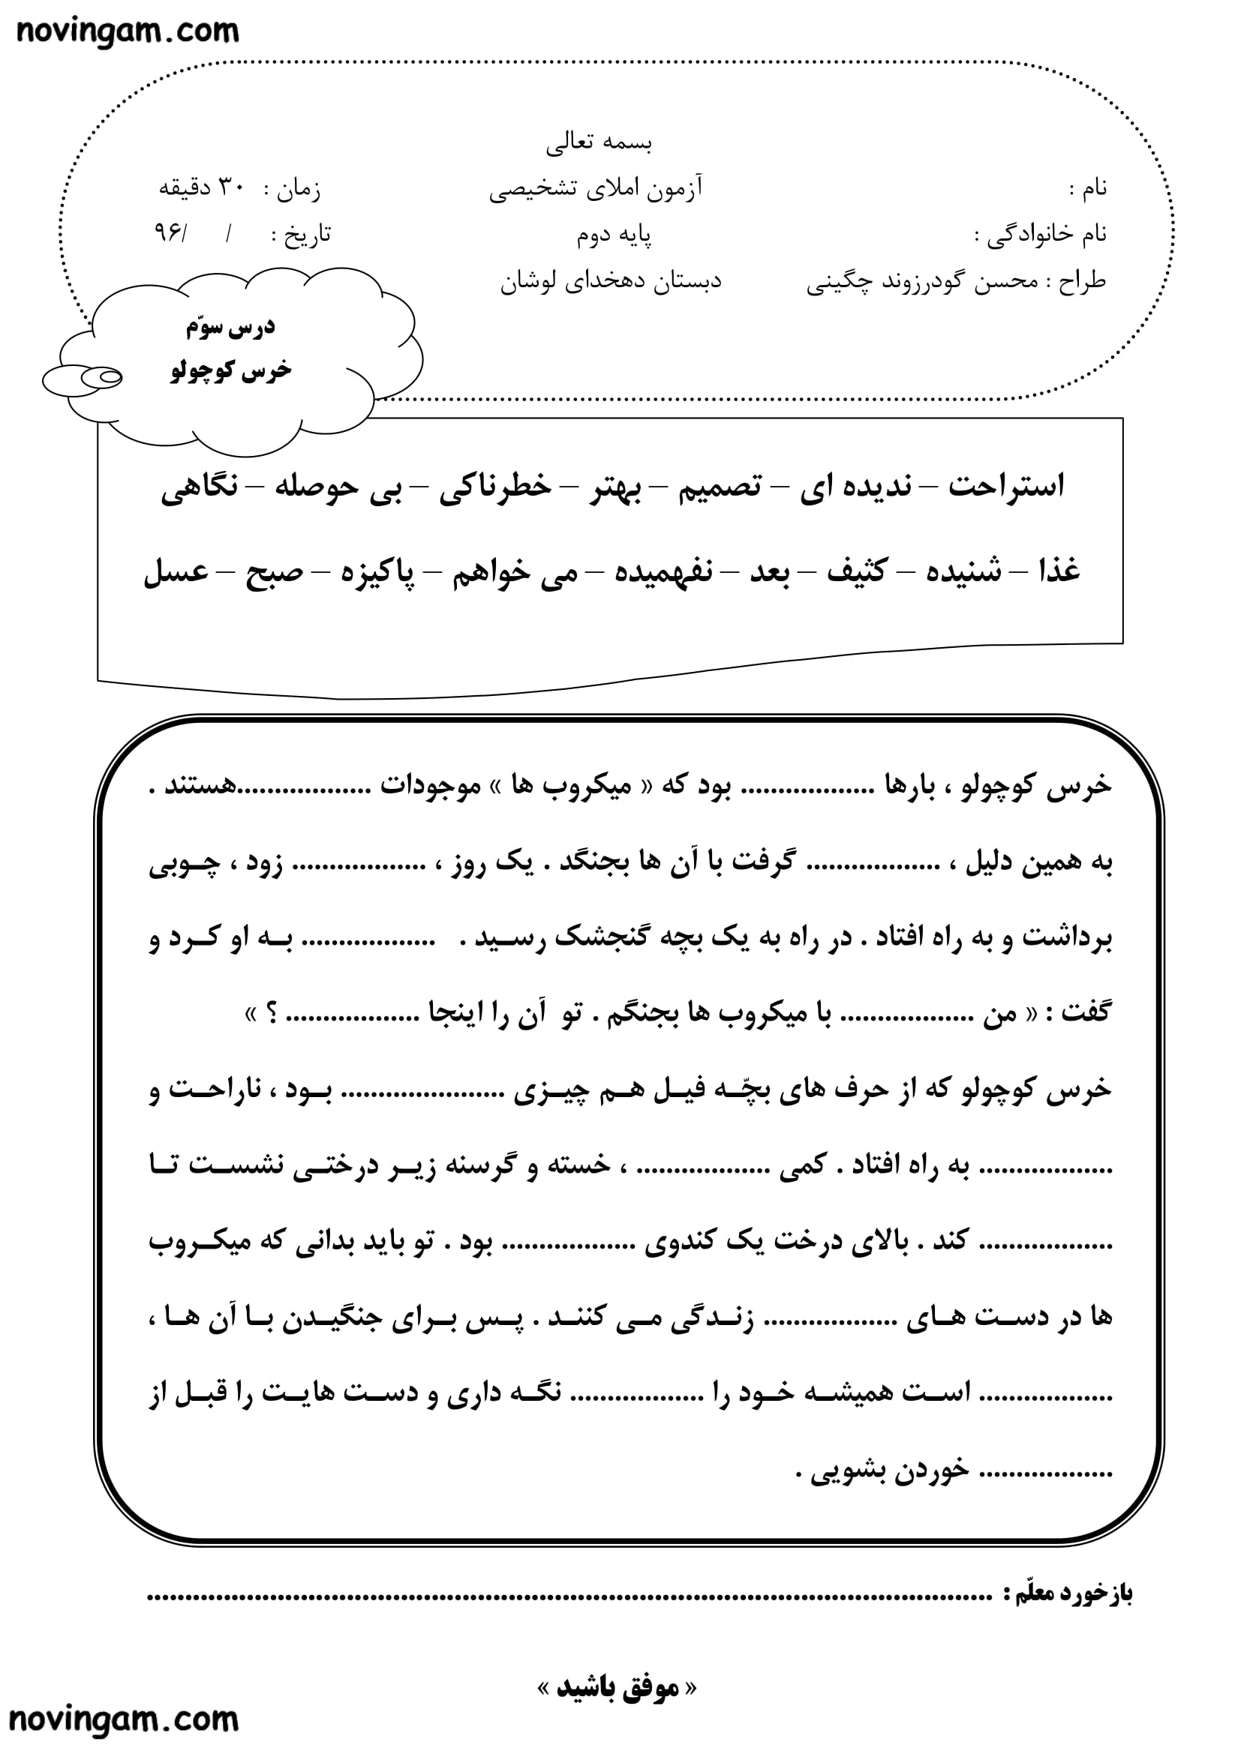 novingam.com
بسمه تعالی
نام : آزمون املای تشخیصی زمان : ۳۰ دقیقه
نام خانوادگی : پایه دوم تاریخ : / /۹۶
طراح : محسن گودرزوند چگینی دبستان دهخدای لوشان
درس سوّم
خرس کوچولو
استراحت – ندیده ای – تصمیم – بهتر – خطرناکی – بی حوصله – نگاهی
غذا – شنیده – کثیف – بعد – نفهمیده – می خواهم – پاکیزه – صبح – عسل
خرس کوچولو ، بارها .................. بود که « میکروب ها » موجودات ..................هستند .
به همین دلیل ، .................. گرفت با آن ها بجنگد . یک روز ، .................. زود ، چـوبی
برداشت و به راه افتاد . در راه به یک بچه گنجشک رسـید . .................. بـه او کـرد و
گفت : « من .................. با میکروب ها بجنگم . تو آن را اینجا .................. ؟ »
خرس کوچولو که از حرف های بچّـه فیـل هـم چیـزی ...................... بـود ، ناراحـت و
.................. به راه افتاد . کمی .................. ، خسته و گرسنه زیـر درختـی نشسـت تـا
.................. کند . بالای درخت یک کندوی .................. بود . تو باید بدانی که میکـروب
ها در دسـت هـای .................. زنـدگی مـی کننـد . پـس بـرای جنگیـدن بـا آن هـا ،
.................. اسـت همیشـه خـود را .................. نگـه داری و دسـت هایـت را قبـل از
.................. خوردن بشویی .
بازخورد معلّم : ..............................................................................................................
« موفق باشید »
novingam.com